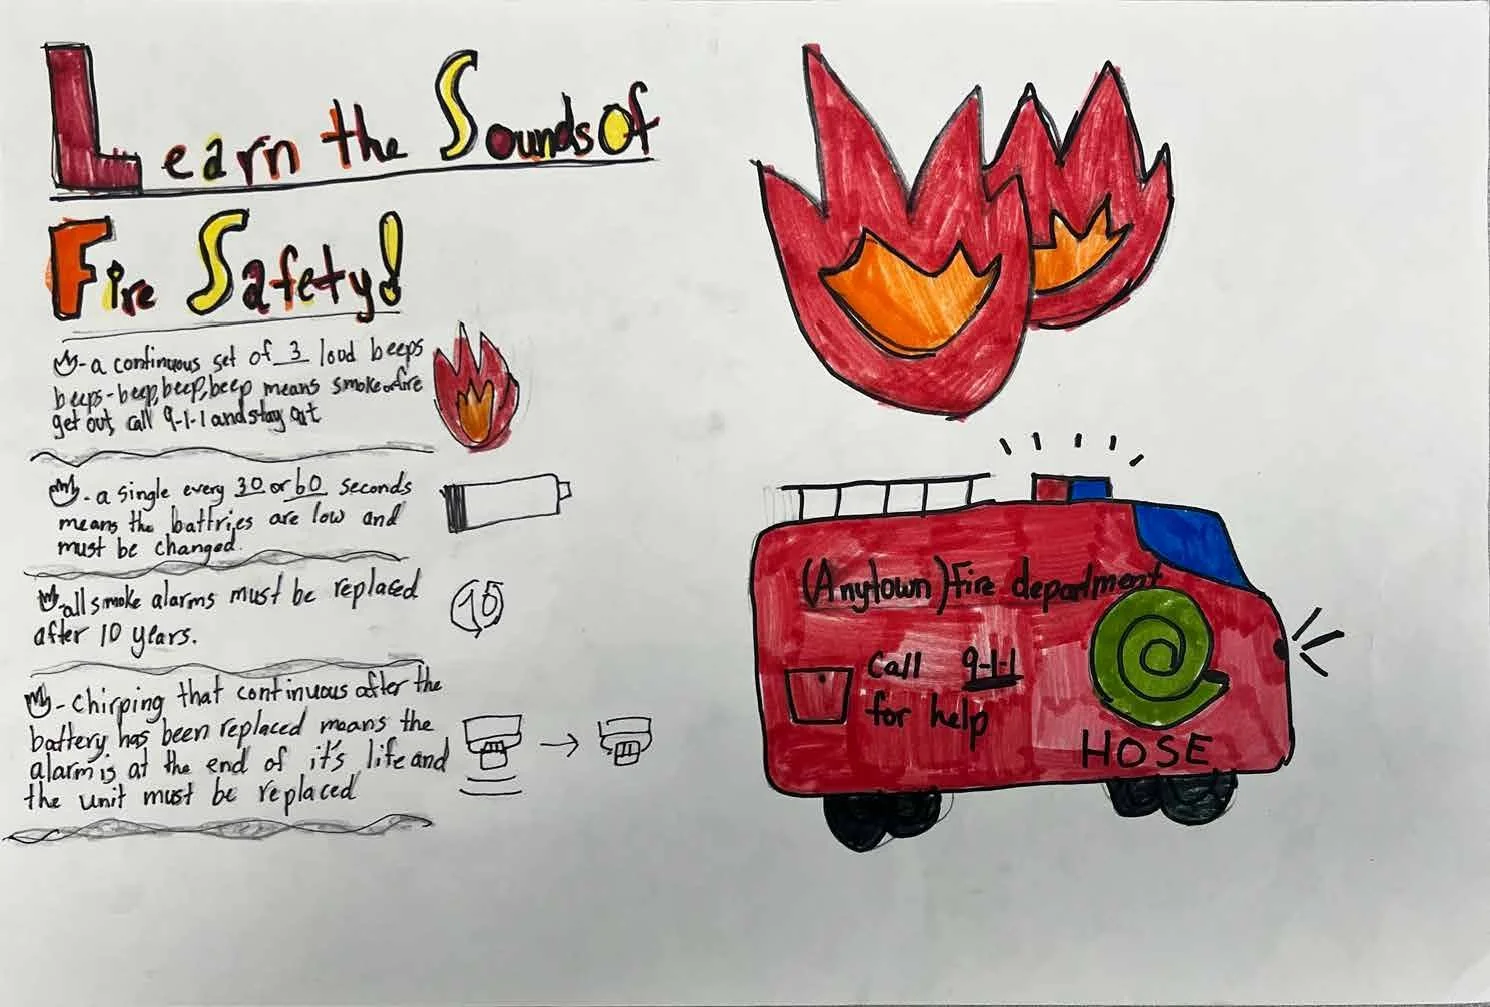 Learn the Sounds Of
Fire Safety!
- a continuous set of 3 loud beeps
beeps-beep, beep, beep means smoke or fire
get out, call 9-1-1 and stay out
- a single every 30 or 60 seconds
means the battries are low and
must be changed.
-all smoke alarms must be replaced
after 10 years.
10
- Chirping that continuous after the
battery has been replaced means the
alarm is at the end of it's life and
the unit must be replaced
(Anytown) Fire department
Call 9-1-1
for help
HOSE